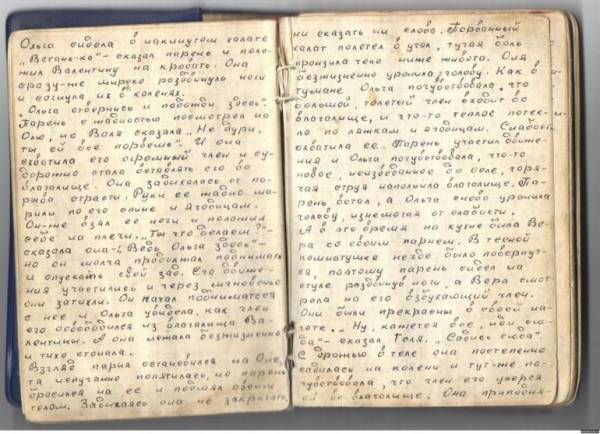 Ольга сидела в накинутом халате
„Встань-ка"- сказал парень и поло-
жил Валентину на кровать. Она
сразу-же широко раздвинула ноги
и согнула их в коленях.
"Ольга отвернись и подожди здесь".
Парень с жадностью посмотрел на
Олю, но Валя сказала „Не дури,
ты ей все порвешь". И она
схватила его огромный член и су-
дорожно стала вставлять его во
влагалище. Она задыхалась от по-
рыва страсти. Руки ее жадно ша-
рили по его спине и ягодицам.
Он-же взял ее ноги и положил
себе на плечи. „Ты что делаешь?"-
сказала она-„Ведь Ольга здесь"-
но он молча продолжал поднимать
и опускать свой зад. Его движе-
ния участились и через мгновенье
они затихли. Он начал подниматься
с нее и Ольга увидела, как член
его освободился из влагалища Ва-
лентины. А она лежала безжизненно
и тихо стонала.
Взгляд парня остановился на Оле,
та испуганно попятилась, но парень
бросился на ее и подмял своим
телом. Задыхаясь она не закричать,
ни сказать ни слова. Порванный
халат полетел в угол, тучая боль
пронзила тело ниже живота. Оля
безжизненно уронила голову. Как в
тумане Ольга почувствовала, что
большой, толстый член входит во
влагалище, и что-то теплое потек-
ло по ляжкам и ягодицам. Слабость
охватила ее. Парень участил движе-
ния и Ольга почувствовала, что-то
новое, неизведанное до селе, горя-
чая струя наполнила влагалище. Па-
рень встал, а Ольга снова уронила
голову, изнемогая от слабости.
А в это время на кухне была Ве-
ра со своим парнем. В тесной
комнатушке негде было повернут-
ся, поэтому парень сидел на
стуле раздвинув ноги, а Вера смот-
рела на его взбухающий член.
Они были прекрасны в своей на-
готе. „Ну, кажется все, иди сю-
да"- сказал Толя. „Садись сюда".
С дрожью в теле она постепенно
садилась на колени и тут-же по-
чувствовала, что член его уперся
ей во влагалище. Она приподня-